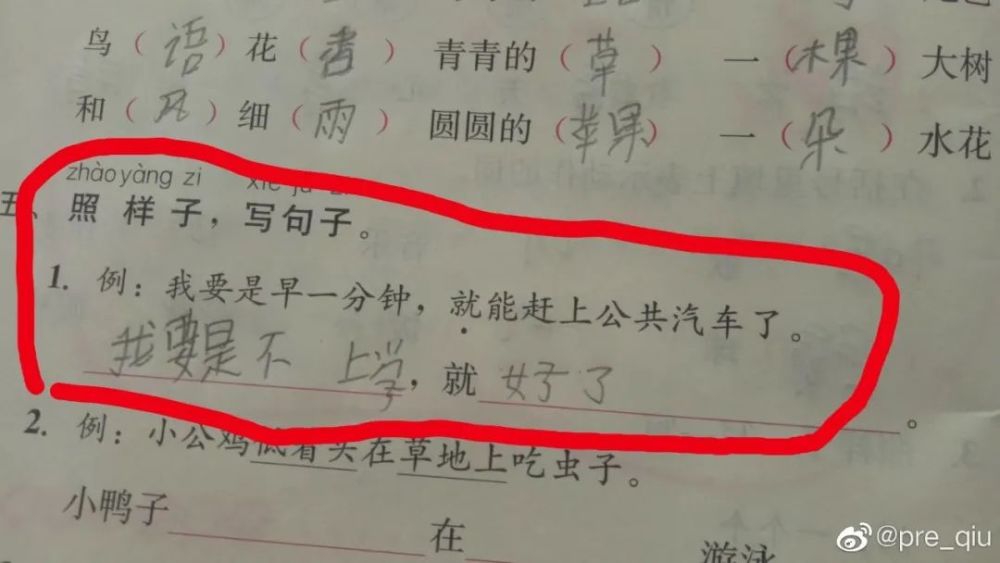 鸟（语）花（香） 青青的（草） 一（棵）大树
和（风）细（雨） 圆圆的（苹果） 一（朵）水花
zhào yàng zi
五、照样子，写句子。
1. 例：我要是早一分钟，就能赶上公共汽车了。
我要是不上学，就好了。
2. 例：小公鸡低着头在草地上吃虫子。
小鸭子 在 游泳
@pre_qiu